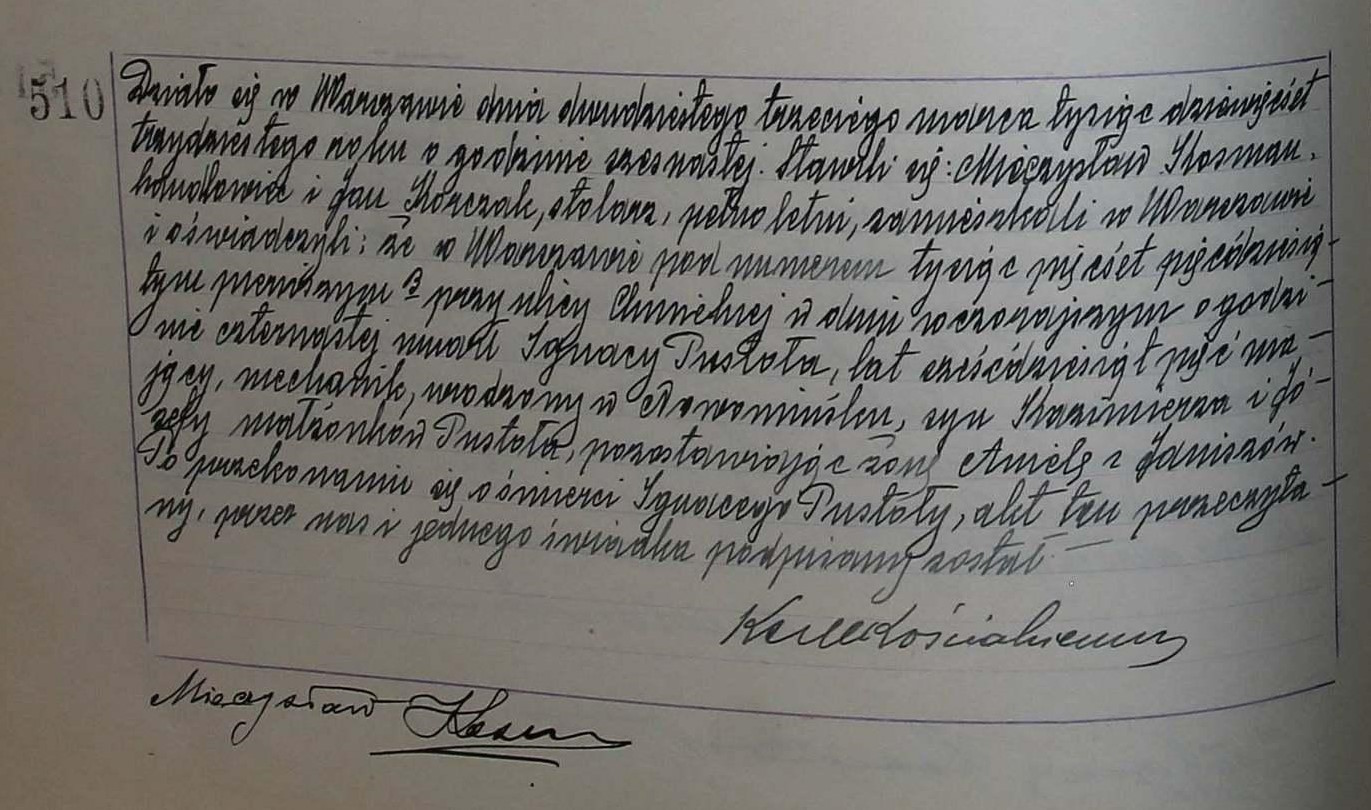 510
Działo się w Warszawie dnia dwudziestego trzeciego marca tysiąc dziewięćset
trzydziestego roku o godzinie szesnastej. Stawili się: Mieczysław Kosman,
handlowiec i Jan Korczak, stolarz, pełnoletni, zamieszkali w Warszawie
i oświadczyli; że w Warszawie pod numerem tysiąc pięćset pięćdziesią-
tym pierwszym B przy ulicy Chmielnej w dniu wczorajszym o godzi-
nie czternastej umarł Ignacy Pustoła, lat sześćdziesiąt pięć ma-
jący, mechanik, urodzony w Nowomińsku, syn Kazimierza i Jó-
zefy małżonków Pustoła, pozostawiając żonę Anielę z Janiszów.
Po przekonaniu się o śmierci Ignacego Pustoły, akt ten przeczyta-
ny, przez nas i jednego świadka podpisany został. —
Mieczysław